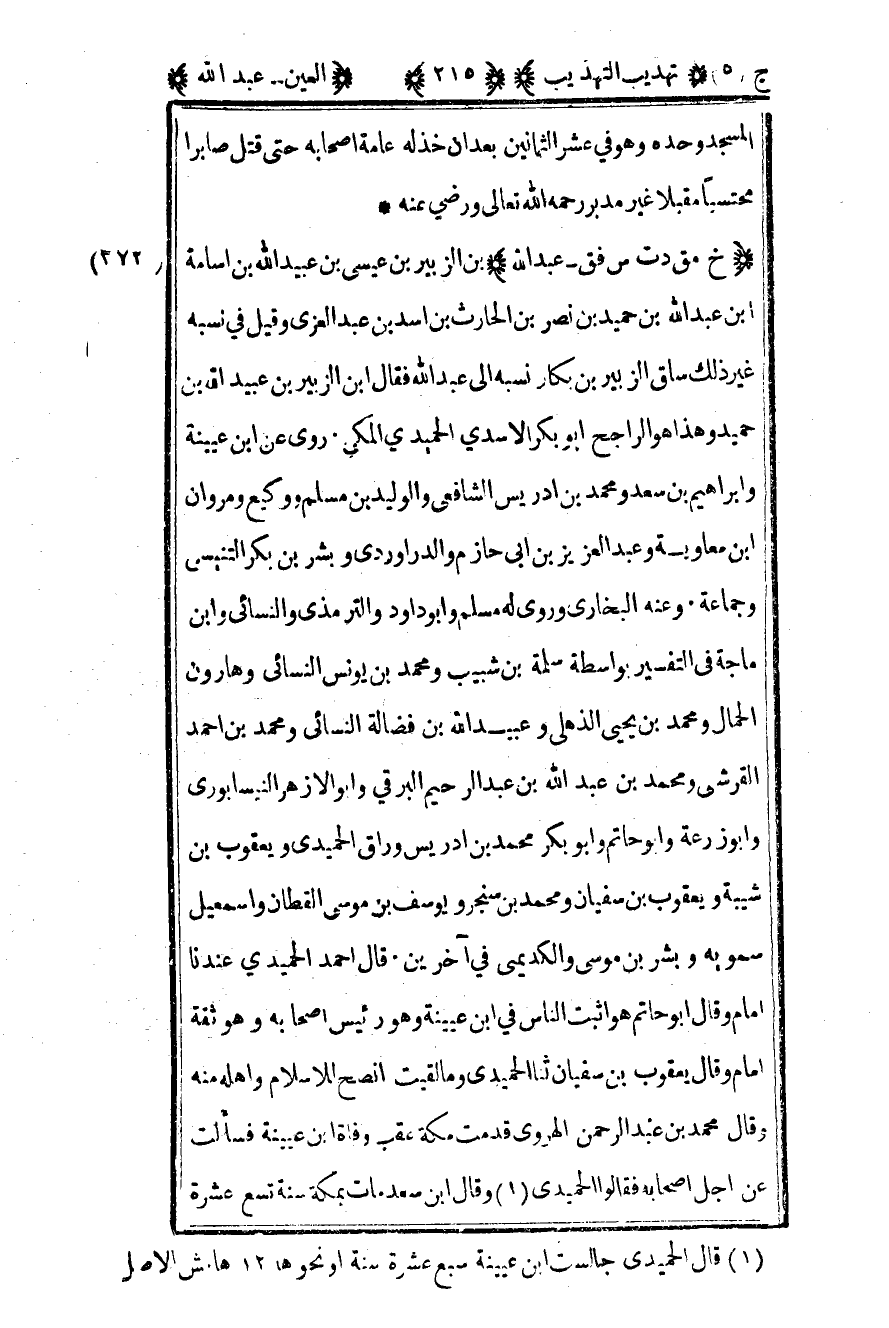 ج (٥) تهذيب التهذيب ٢١٥ العين ـ عبد الله
المسجد وحده وهو في عشر الثمانين بعد ان خذله عامة اصحابه حتى قتل صابرا
محتسباً مقبلا غير مدبر رحمه الله تعالى ورضي عنه *
(٣٧٢) خ مق د ت س فق ـ عبد الله بن الزبير بن عيسى بن عبيد الله بن اسامة
ابن عبد الله بن حميد بن نصر بن الحارث بن اسد بن عبد العزى وقيل في نسبه
غير ذلك ساق الزبير بن بكار نسبه الى عبد الله فقال ابن الزبير بن عبيد الله بن
حميد وهذا هو الراجح ابو بكر الاسدي الحميدي المكي · روى عن ابن عيينة
وابراهيم بن سعد ومحمد بن ادريس الشافعي والوليد بن مسلم ووكيع ومروان
ابن معاوية وعبد العزيز بن ابى حازم والدراوردى وبشر بن بكر التنيسى
وجماعة · وعنه البخارى وروى له مسلم وابو داود والترمذى والنسائى وابن
ماجة فى التفسير بواسطة سلمة بن شبيب ومحمد بن يونس النسائى وهارون
الحمال ومحمد بن يحيى الذهلى وعبيد الله بن فضالة النسائى ومحمد بن احمد
القرشى ومحمد بن عبد الله بن عبد الرحيم البرقي وابو الازهر النيسابورى
وابو زرعة وابو حاتم وابو بكر محمد بن ادريس وراق الحميدى ويعقوب بن
شيبة ويعقوب بن سفيان ومحمد بن سنجر ويوسف بن موسى القطان واسمعيل
سمويه وبشر بن موسى والكديمى في آخرين · قال احمد الحميدي عندنا
امام وقال ابو حاتم هو اثبت الناس في ابن عيينة وهو رئيس اصحابه وهو ثقة
امام وقال يعقوب بن سفيان ثنا الحميدى وما لقيت انصح للاسلام واهله منه
وقال محمد بن عبد الرحمن الهروى قدمت مكة عقب وفاة ابن عيينة فسألت
عن اجل اصحابه فقالوا الحميدى (١) وقال ابن سعد مات بمكة سنة تسع عشرة
(١) قال الحميدى جالست ابن عيينة سبع عشرة سنة او نحوها ١٢ هامش الاصل